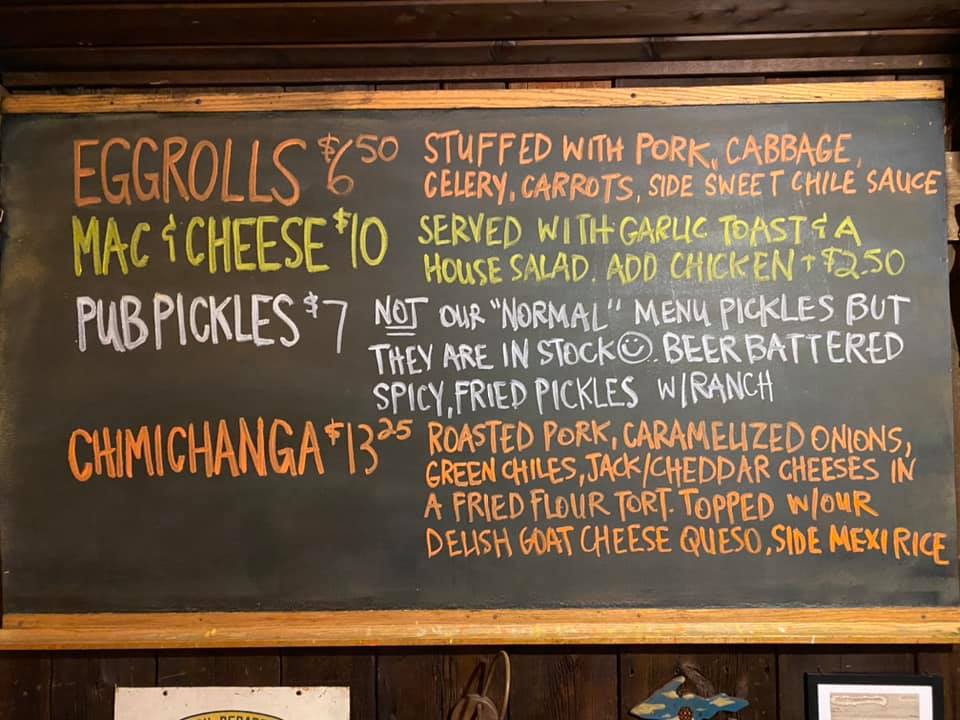 EGGROLLS $6.50 STUFFED WITH PORK, CABBAGE,
CELERY, CARROTS, SIDE SWEET CHILE SAUCE
MAC & CHEESE $10 SERVED WITH GARLIC TOAST & A
HOUSE SALAD. ADD CHICKEN + $2.50
PUB PICKLES $7 NOT OUR "NORMAL" MENU PICKLES BUT
THEY ARE IN STOCK☺. BEER BATTERED
SPICY, FRIED PICKLES W/RANCH
CHIMICHANGA $13.25 ROASTED PORK, CARAMELIZED ONIONS,
GREEN CHILES, JACK/CHEDDAR CHEESES IN
A FRIED FLOUR TORT. TOPPED W/OUR
DELISH GOAT CHEESE QUESO, SIDE MEXI RICE